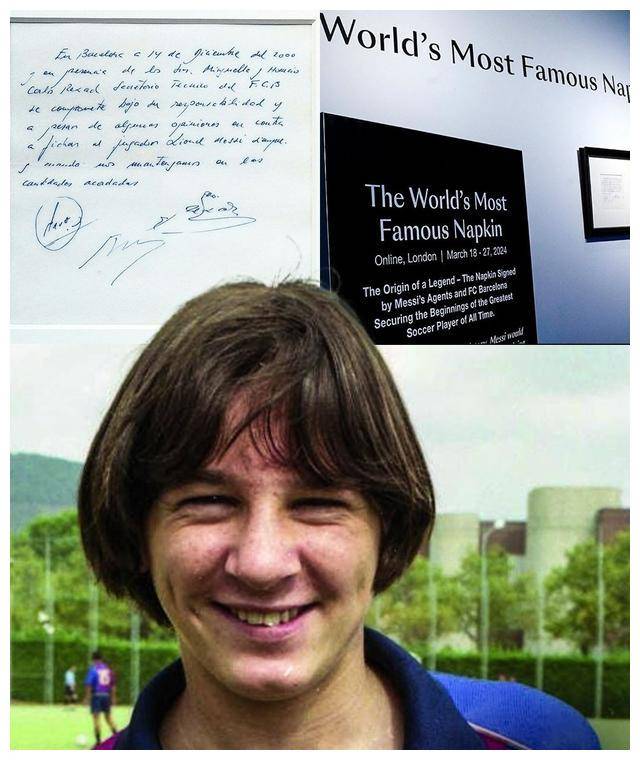 En Barcelona a 14 de Diciembre del 2000
y en presencia de los Srs. Minguella y Horacio
Carlo Rexach Secretario Tecnico del F.C.B
se compromete bajo su responsabilidad y
a pesar de algunas opiniones en contra
a fichar al jugador Lionel Messi siempre
y cuando nos mantengamos en las
cantidades acordadas
World's Most Famous Nap
The World's Most
Famous Napkin
Online, London | March 18 - 27, 2024
The Origin of a Legend – The Napkin Signed
by Messi's Agents and FC Barcelona
Securing the Beginnings of the Greatest
Soccer Player of All Time.
Messi would